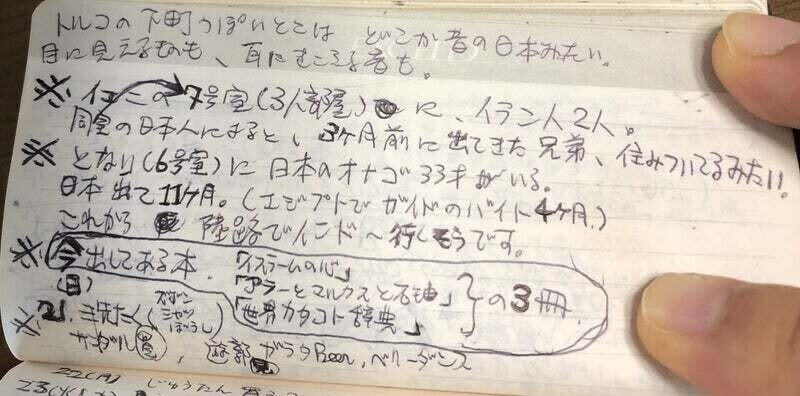 トルコの下町っぽいとこは どこか昔の日本みたい。
目に見えるものも、耳にきこえる音も。
※ ここの7号室(3人部屋)に、イラン人2人。
同室の日本人によると、3ヶ月前に出てきた兄弟、住みついてるみたい。
※ となり(6号室)に日本のオナゴ33才がいる。
日本出て11ヶ月。(エジプトでガイドのバイト4ヶ月)
これから 陸路でインドへ行くそうです。
※ 今出してある本.「イスラームの心」
「アラーとマルクスと石油」
「世界カタコト辞典」
}の3冊.
(日)
※ 21. 洗たく(ズボン シャツ ぼうし)
サンダル買, 遊郭見 ガラタBeer, ベリーダンス
22(月) じゅうたん
23(火)